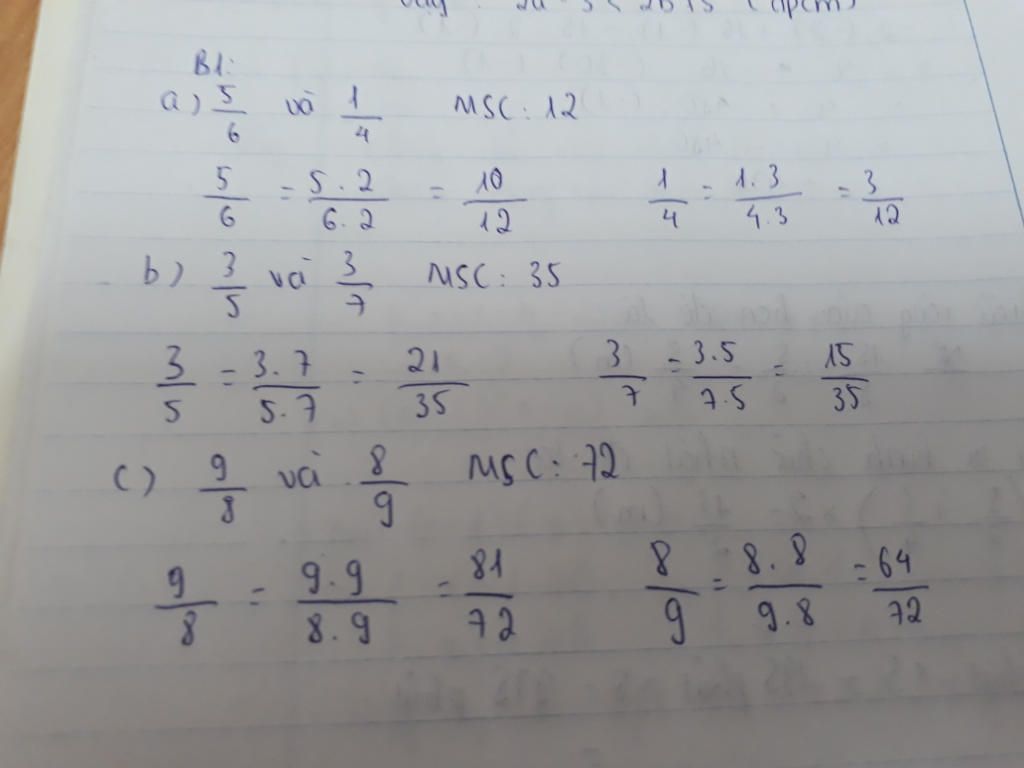 2a - 5 < 2b + 5 (đpcm)
B1:
a) 5/6 và 1/4 MSC: 12
5/6 = 5.2/6.2 = 10/12 1/4 = 1.3/4.3 = 3/12
b) 3/5 và 3/7 MSC: 35
3/5 = 3.7/5.7 = 21/35 3/7 = 3.5/7.5 = 15/35
c) 9/8 và 8/9 MSC: 72
9/8 = 9.9/8.9 = 81/72 8/9 = 8.8/9.8 = 64/72